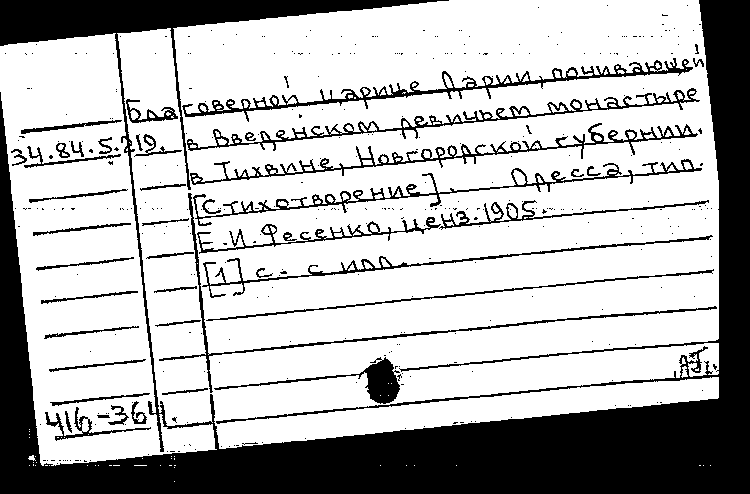 Благоверной царице Дарии, почивающей
34.84.5.219. в Введенском девичьем монастыре
в Тихвине, Новгородской губернии.
[Стихотворение]. Одесса, тип.
Е.И. Фесенко, ценз. 1905.
[1] с. с илл.
416-364.